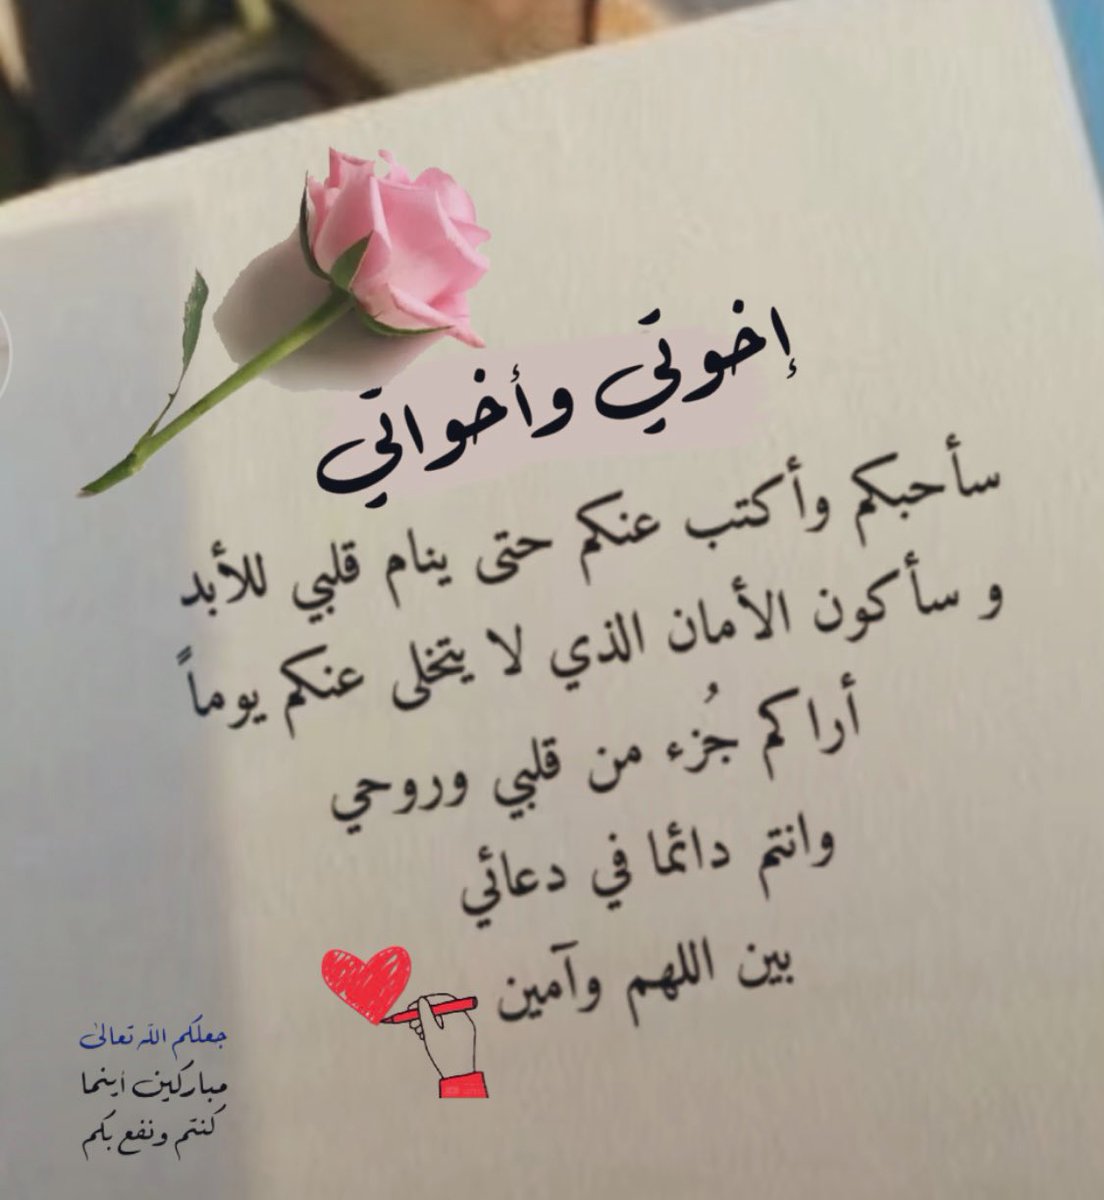 إخوتي وأخواتي
سأحبكم وأكتب عنكم حتى ينام قلبي للأبد
و سأكون الأمان الذي لا يتخلى عنكم يوماً
أراكم جُزء من قلبي وروحي
وانتم دائما في دعائي
بين اللهم وآمين
جعلكم الله تعالى
مباركين أينما
كنتم ونفع بكم